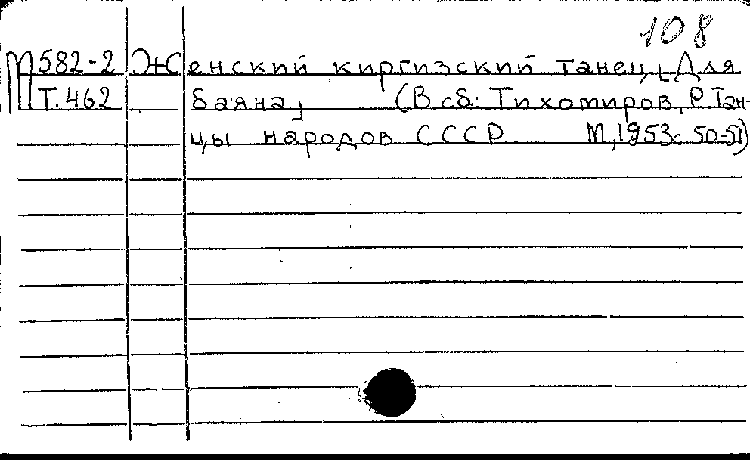 108
М582-2 Женский киргизский танец, [Для
Т.462 баяна] (В сб: Тихомиров, Р. Тан-
цы народов СССР М, 1953 с 50-51)